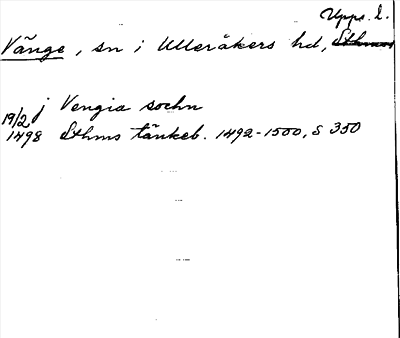 Upps. l.
Vänge, sn i Ulleråkers hd, Sthms
j Vengia sochn
19/2 1498 Sthms tänkeb. 1492-1500, S 350